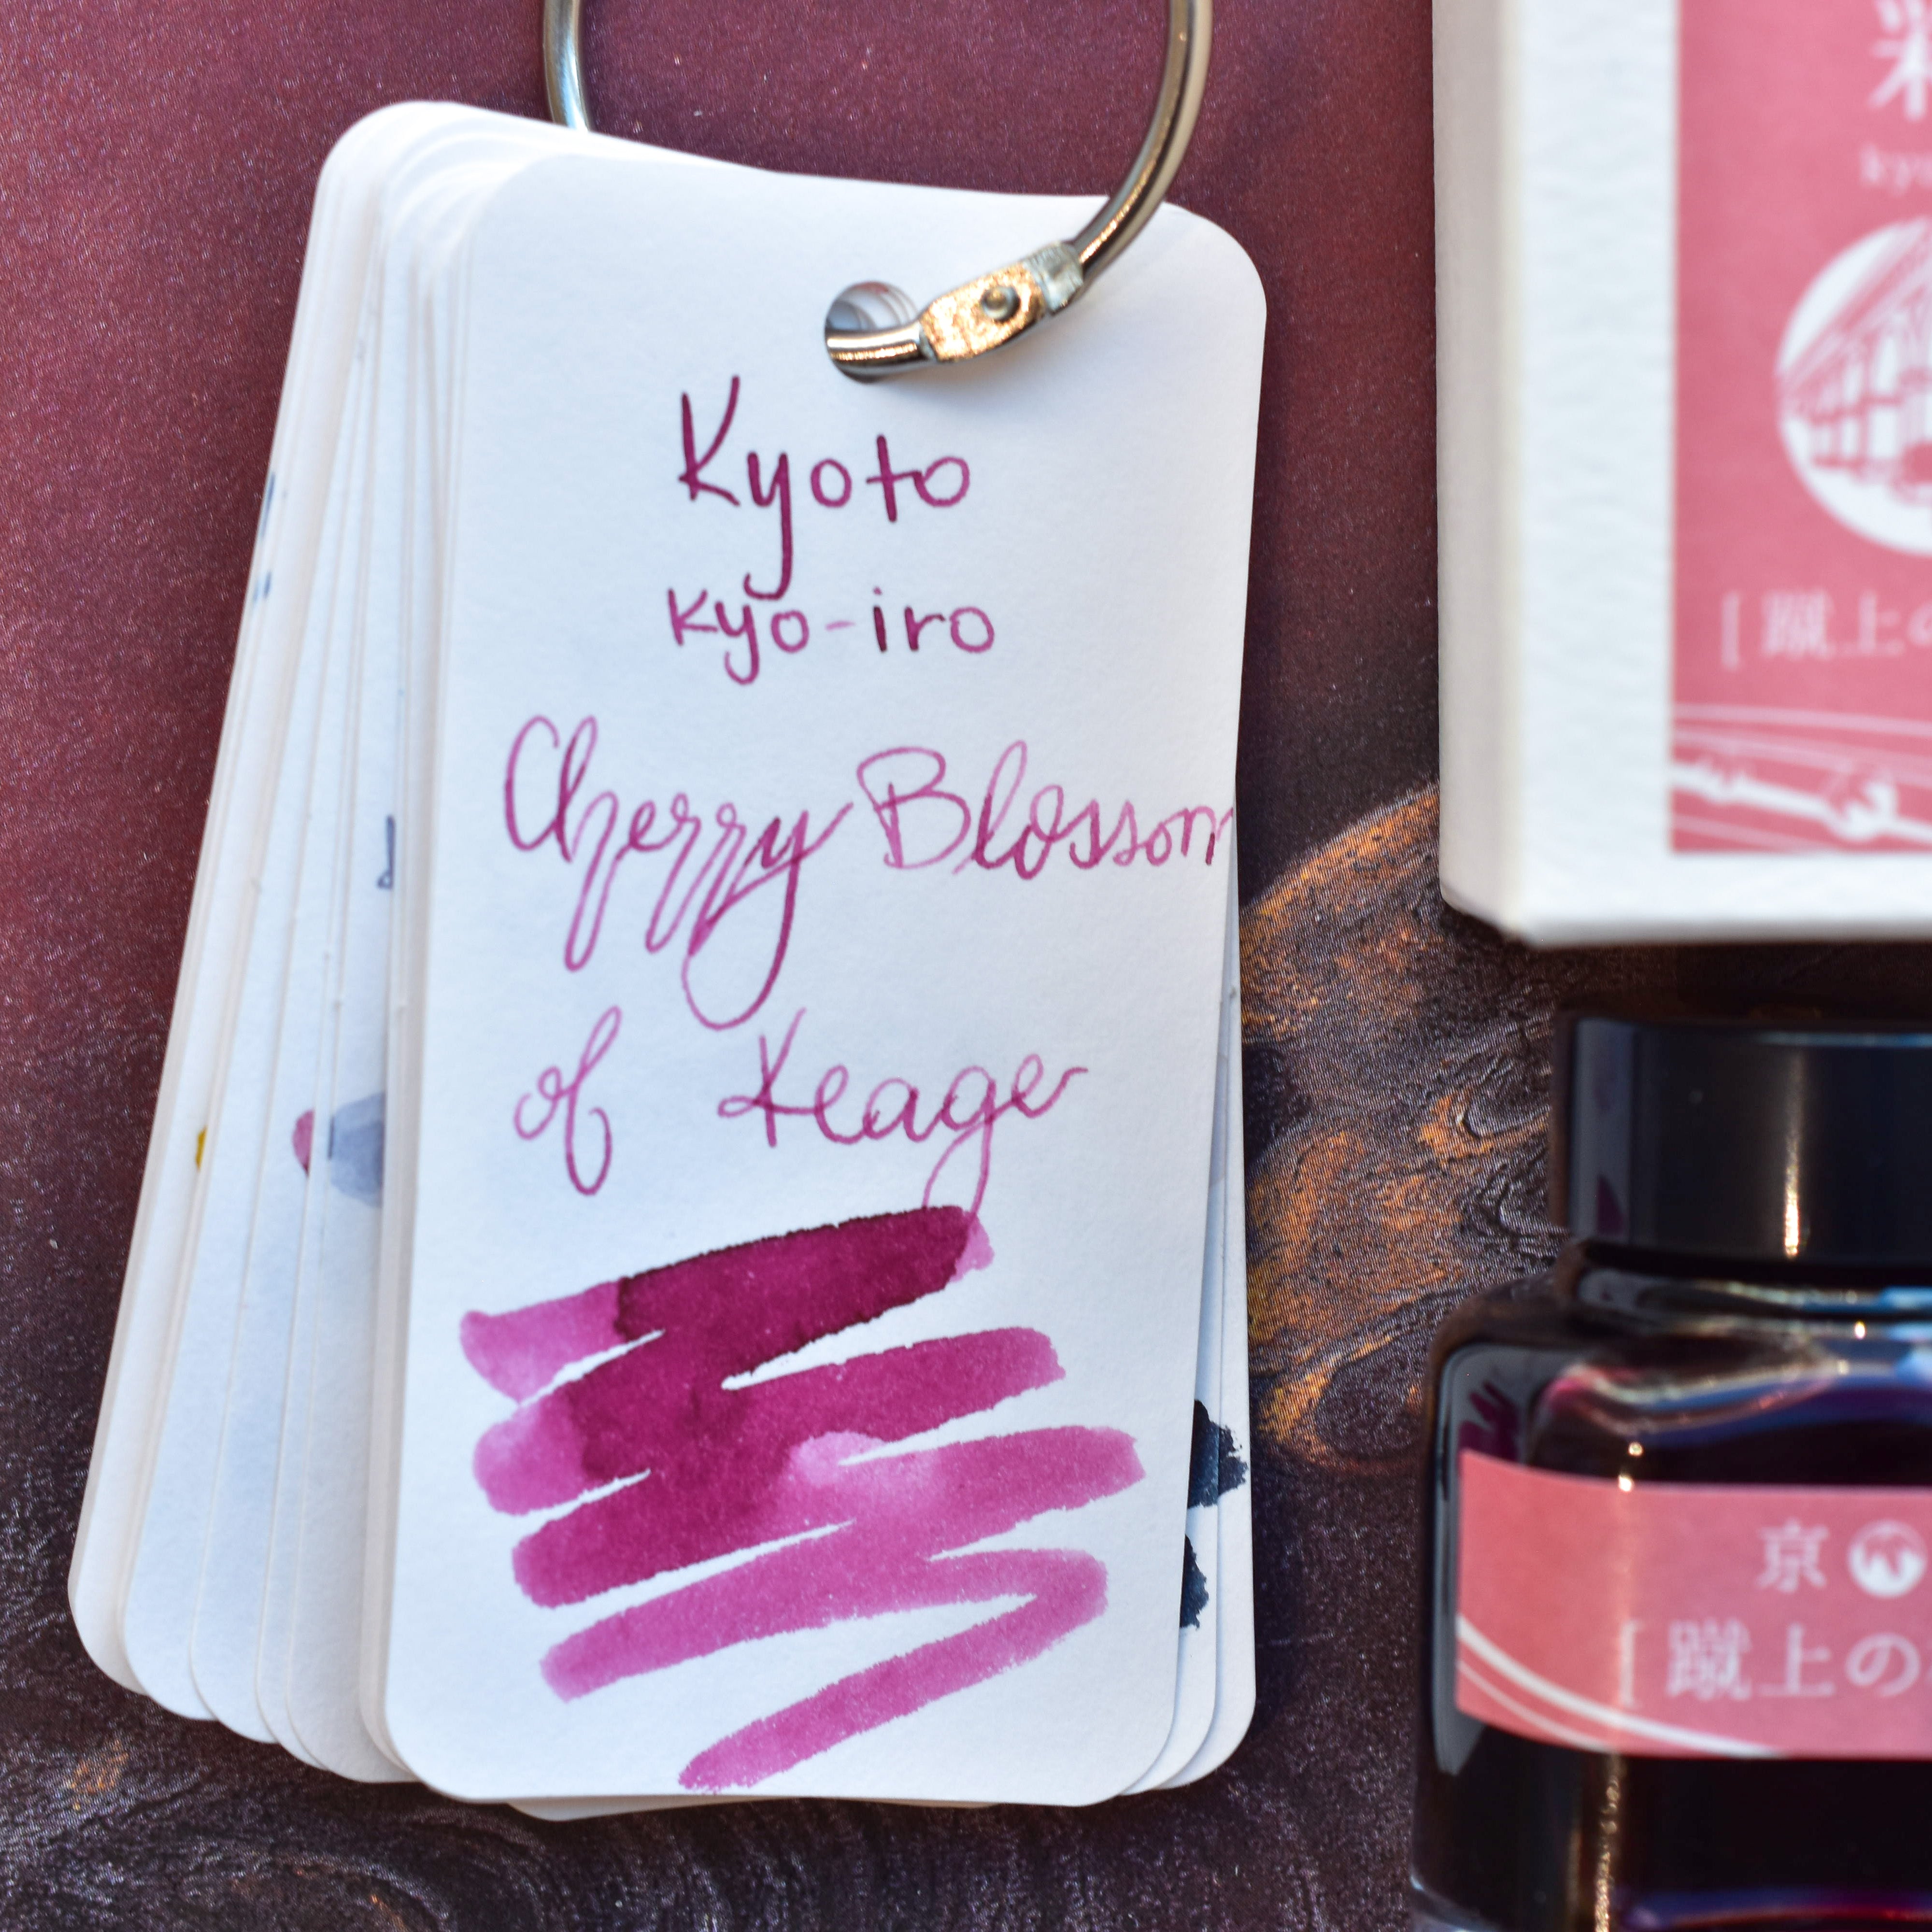 Kyoto
kyo-iro
Cherry Blossom
of Keage
彩
kyo
[ 蹴上の
京
[ 蹴上の